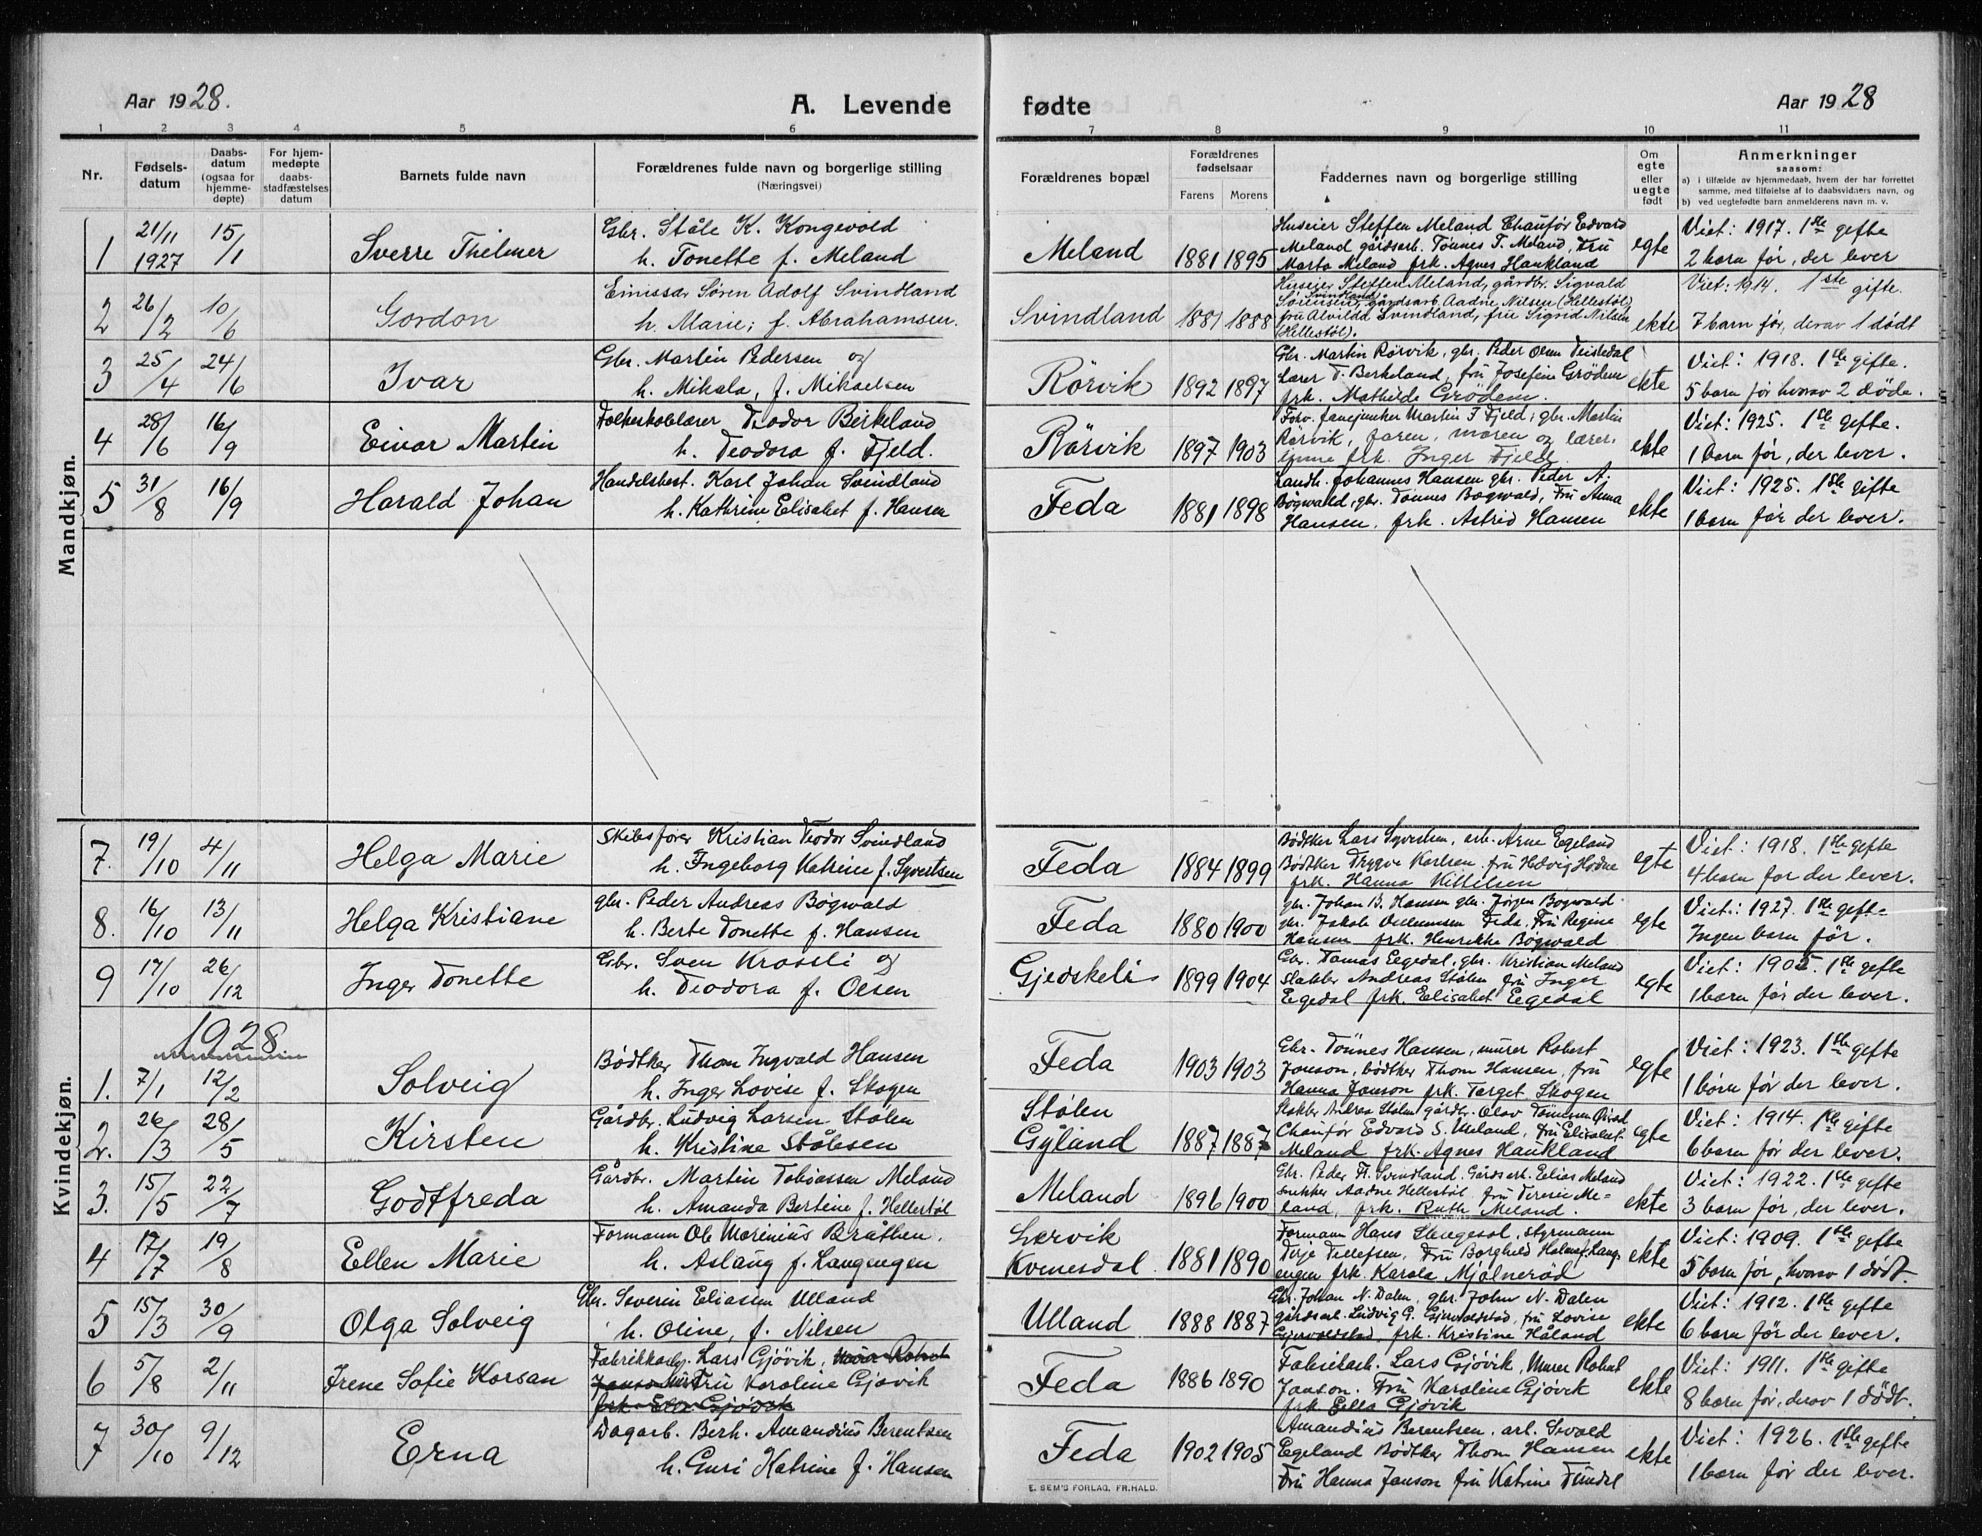 Aar 1928.
A. Levende
fødte
Aar 1928
1 2 3 4 5 6 7 8 9 10 11
Nr.
Fødselsdatum
Daabsdatum (ogsaa for hjemmedøpte)
For hjemmedøpte daabsstadfæstelses datum
Barnets fulde navn
Forældrenes fulde navn og borgerlige stilling
(Næringsvei)
Forældrenes bopæl
Forældrenes fødselsaar
Farens Morens
Faddernes navn og borgerlige stilling
Om egte eller uegte født
Anmerkninger
saasom:
a) i tilfælde av hjemmedaab, hvem der har forrettet samme, med tilføielse af to daabsvidners navn, og
b) ved uegtefødte barn anmelderens navn m. v.
Mandkjøn.
1 21/11 1927 15/1 Sverre Thilmer
Gbr. Ståle K. Kongevold
h. Tonette f. Meland
Meland 1881 1895
Huseier Steffen Meland Chaufør Edvard
Meland gårdsarb. Tønnes T. Meland, Fru
Marta Meland frk. Agnes Haukland
egte
Viet: 1917. 1ste gifte
2 barn før, der lever
2 26/2 10/6 Gordon
Søren Adolf Svindland
h. Marie; f. Abrahamsen.
Svindland 1881 1888
Huseier Steffen Meland, gårdbr. Sigvald
Sørensen, Svindland gårdsarb. Aadne Nilsen (Hellestøl)
fru Alvilda Svindland, fru Sigrid Nilsen
(Hellestøl).
ekte
Viet: 1914. 1ste gifte.
7 barn før, derav 1 dødt
3 25/4 24/6 Ivar
Gbr. Martin Pedersen og
h. Mikala, f. Mikaelsen
Rørvik 1892 1897
Gbr. Martin Rørvik, gbr. Peder Olsen
Lærer T. Berkeland, fru Josefine Grødem
frk. Mathilde Grødem.
ekte
Viet: 1918. 1ste gifte.
5 barn før hvorav 2 døde.
4 28/6 16/9 Einar Martin
Folkeskolelærer Teodor Birkeland
h. Teodora f. Fjeld.
Rørvik 1897 1903
Forv. fanejunker Martin T. Fjeld; gbr. Martin
Rørvik, faren, moren og lærer-
inne frk. Inger Fjeld.
ekte
Viet: 1925. 1ste gifte.
1 barn før, der lever.
5 31/8 16/9 Harald Johan
Handelsbest. Karl Johan Svindland
h. Kathrine Elisabet f. Hansen
Feda 1881 1898
Landh. Johannes Hansen gbr. Peder A.
Bøgwald, gbr. Tønnes Bøgwald, Fru Anna
Hansen, frk. Astrid Hansen
ekte
Viet: 1925. 1ste gifte
1 barn før der lever.
Kvindekjøn.
7. 19/10 4/11 Helga Marie
Skibsfører Kristian Teodor Svindland
h. Ingeborg Katrine f. Syvertsen
Feda 1884 1899
Bødtker Lars Syvertsen, arb. Arne Egeland
Bødtker Trygve Karlsen, fru Hedvig Hodne
frk. Hanna Kittelsen
egte
Viet: 1918. 1ste gifte
4 barn før der lever.
8. 16/10 13/11 Helga Kristiane
gbr. Peder Andreas Bøgwald
h. Berte Tonette f. Hansen
Feda 1880 1900
gbr. Johan B. Hansen gbr. Jørgen Bøgwald
gbr. Jakob Feda, Fru Regine
Hansen frk. Henrikke Bøgwald
egte
Viet: 1927. 1ste gifte
Ingen barn før.
9 17/10 26/12 Inger Tonette
Gbr. Sven Krossli og
h. Teodora f. Olsen
Gjedskeli 1899 1904
Gbr. Tomas Egedal, gbr. Kristian Meland
Andreas Stølen fru Inger
Egedal frk. Elisabet Egedal
egte
Viet: 1905. 1ste gifte
1 barn før der lever.
1928
1. 7/1 12/2 Solveig
Bødtker Thom Ingvald Hansen
h. Inger Lovise f. Skogen
Feda 1903 1903
Gbr. Tønnes Hansen, murer Robert
Janson, bødtker Thom Hansen, fru
Hanna Janson frk. Target Skogen
egte
Viet: 1923. 1ste gifte
1 barn før der lever.
2. 26/3 28/5 Kirsten
Gårdbr. Ludvig Larsen Stølen
h. Kristine Stålesen
Stølen
Gyland 1887 1887
Andreas Stølen gårdbr. Olav Tønnesen
Chaufør Edvard S. Meland, Fru Elisabet
Meland frk. Agnes Haukland
egte
Viet: 1914. 1ste gifte
6 barn før der lever.
3. 15/5 22/7 Godtfreda
Gårdbr. Martin Tobiassen Meland
h. Amanda Bertine f. Hellestøl
Meland 1896 1900
Gbr. Peder Svindland. Gårdsarb. Elias Meland
snekker Aadne Hellestøl, fru Tirese Me-
land, frk. Ruth Meland.
ekte
Viet: 1922. 1ste gifte
3 barn før, der lever.
4 17/7 19/8 Ellen Marie
Formann Ole Marinius Bråthen.
h. Aslaug f. Langengen
Lervik
Kvinesdal. 1881 1890
Formann Hans styrmann
Terje Tellefsen, Fru Borghild Holmsf. Lang-
engen frk. Karola Mjølnerød
ekte
Viet: 1909. 1ste gifte
5 barn før, hvorav 1 dødt.
5 15/3 30/9 Olga Solveig
Gbr. Severin Eliassen Ulland
h. Oline, f. Nilsen
Ulland 1888 1887
Gbr. Johan N. Dalen, gbr. John N. Dalen
gårdsarb. Ludvig G. Gjervoldstad, fru Lovise
Gjervoldstad, frk. Kristine Håland
ekte
Viet: 1912. 1ste gifte
6 barn før der lever.
6 5/8 2/11 Irene Sofie Korsan
Fabrikkarb. Lars Gjøvik, Murer Robert
Janson Fru Karoline Gjøvik
frk. Ella Gjøvik
Feda 1886 1890
Fabrikarb. Lars Gjøvik, Murer Robert
Janson. Fru Karoline Gjøvik
frk Ella Gjøvik
ekte
Viet: 1911. 1ste gifte
8 barn før, derav 1 dødt.
7 30/10 9/12 Erna
Dagarb. Berh. Amandius Berentsen
h. Guri Katrine f. Hansen
Feda 1902 1905
Amandius Berentsen, arb. Sevald
Egeland Bødtker Thom Hansen
Fru Hanna Janson fru Katrine Tindel
ekte
Viet: 1926. 1ste gifte
1 barn før der lever.
E. SEM'S FORLAG, FR.HALD.